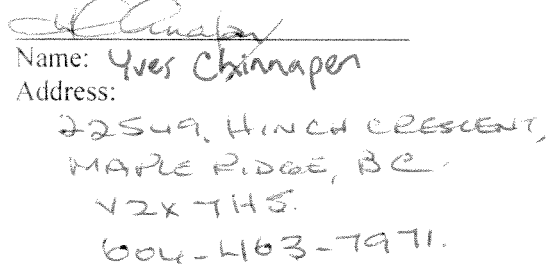 Name: Yves Chinnapen
Address:
22549, HINCH CRESCENT,
MAPLE RIDGE, BC.
V2X 7H5.
604-463-7971.